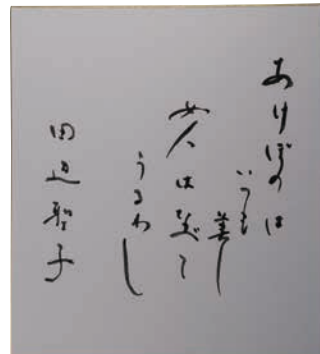 あけぼのは
いつも
美し
女は笑て
うるわし
田辺聖子